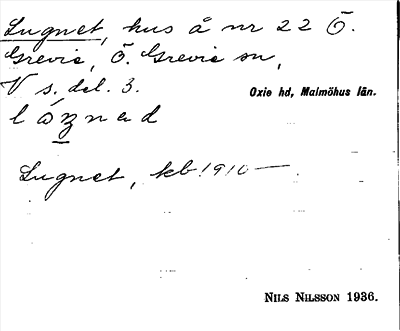 Lugnet, hus å nr 22 Ö.
Grevie, Ö. Grevie sn,
V s. del. 3.
Oxie hd, Malmöhus län.
Lugnet, kb. 1910—.
NILS NILSSON 1936.